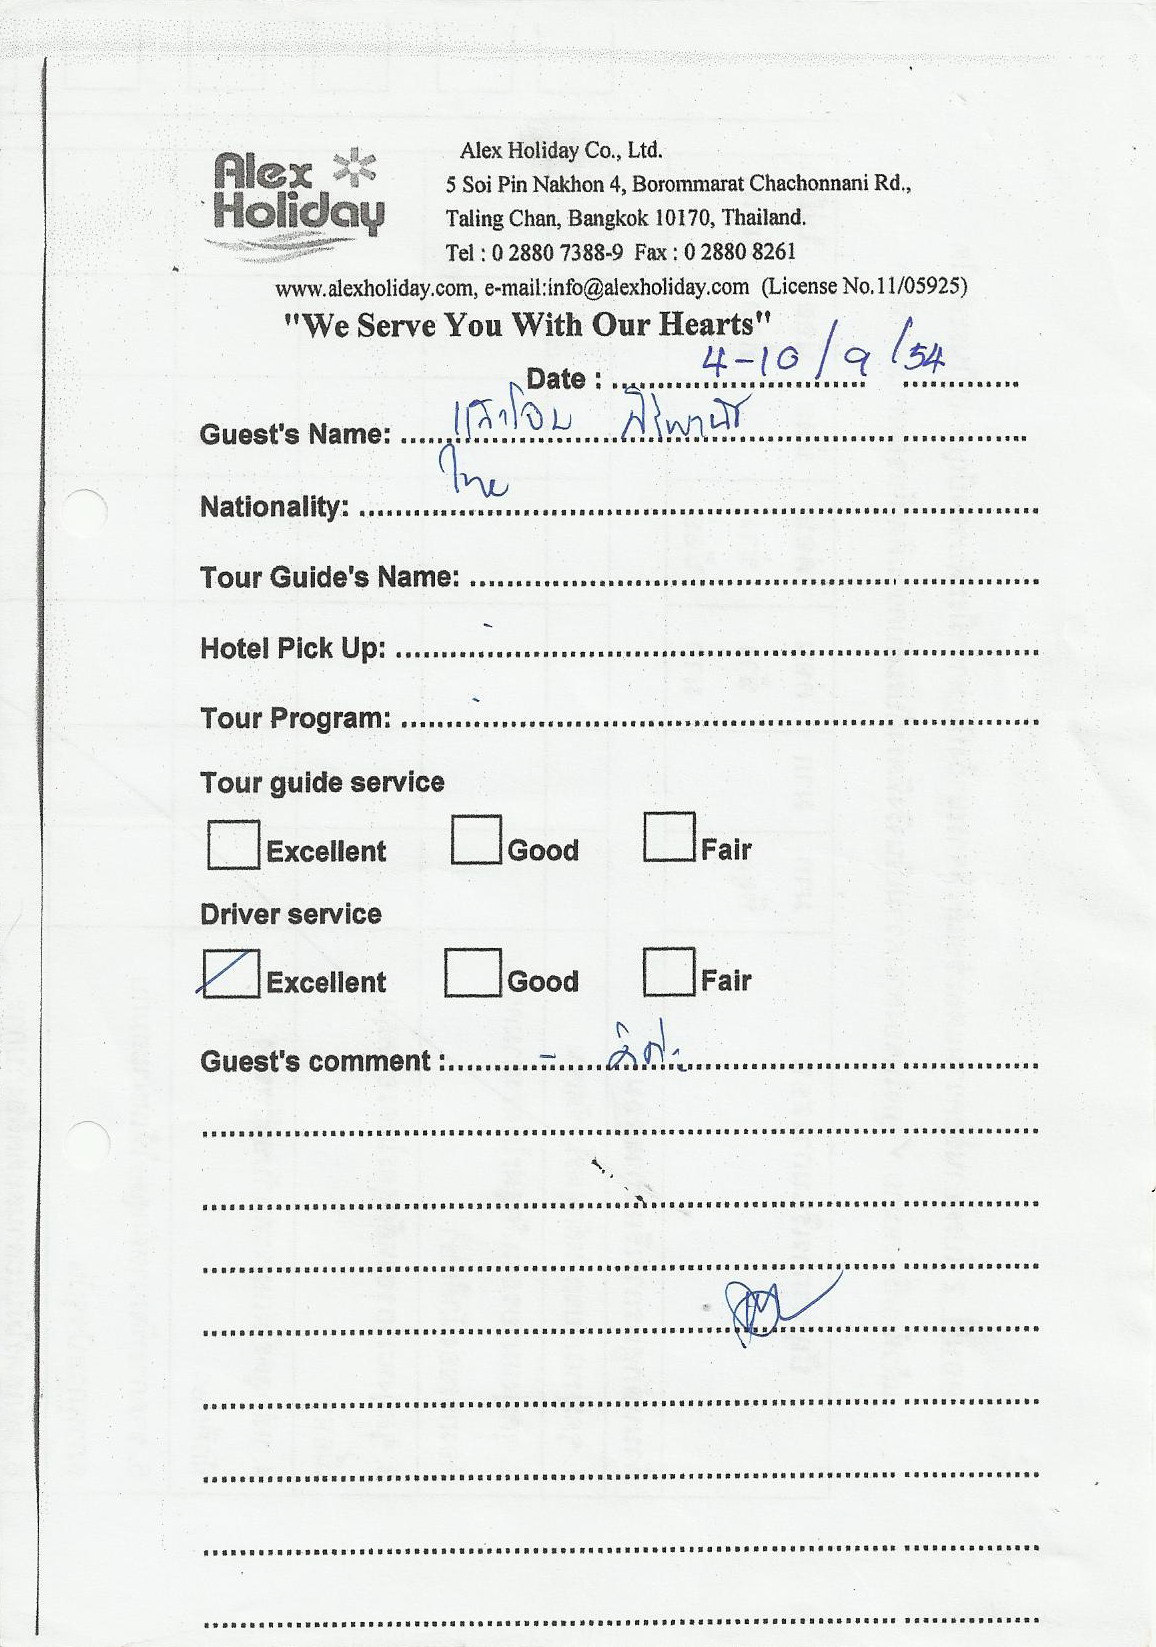 Alex
Holiday
Alex Holiday Co., Ltd.
5 Soi Pin Nakhon 4, Borommarat Chachonnani Rd.,
Taling Chan, Bangkok 10170, Thailand.
Tel : 0 2880 7388-9 Fax : 0 2880 8261
www.alexholiday.com, e-mail:info@alexholiday.com (License No.11/05925)
"We Serve You With Our Hearts"
Date : 4-10/9/54
Guest's Name:
Nationality: ไทย
Tour Guide's Name:
Hotel Pick Up: -
Tour Program: -
Tour guide service
Excellent Good Fair
Driver service
Excellent Good Fair
Guest's comment : -